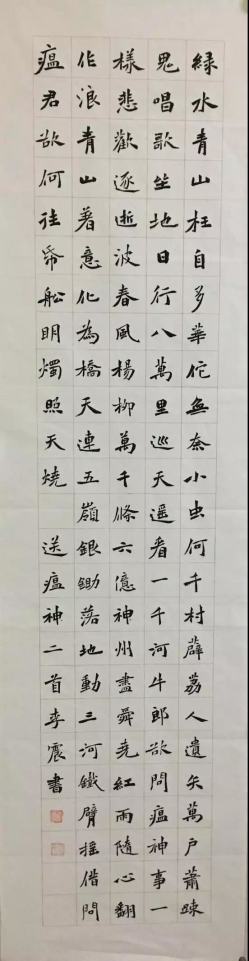 綠水青山枉自多華佗無奈小虫何千村薜荔人遺矢萬戶蕭疎
鬼唱歌坐地日行八萬里巡天遥看一千河牛郎欲問瘟神事一
樣悲歡逐逝波春風楊柳萬千條六億神州盡舜堯紅雨隨心翻
作浪青山着意化為橋天連五嶺銀鋤落地動三河鐵臂摇借問
瘟君欲何往帋船明燭照天燒 送瘟神二首李震書